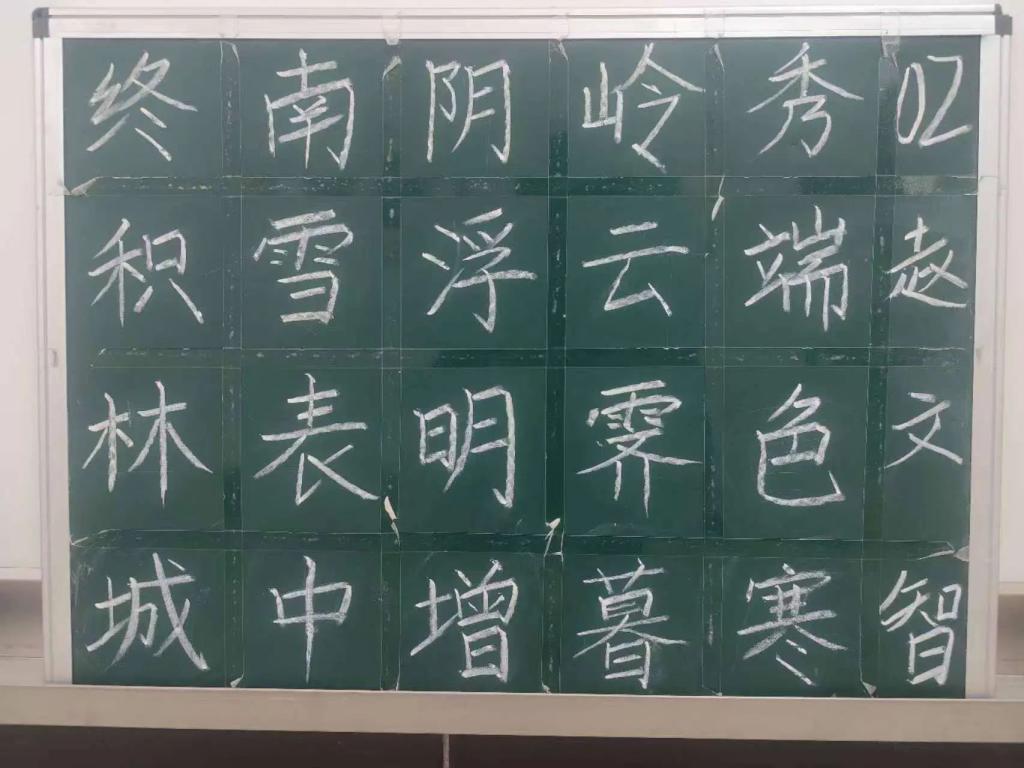 终南阴岭秀 02
积雪浮云端 赵
林表明霁色 文
城中增暮寒 智